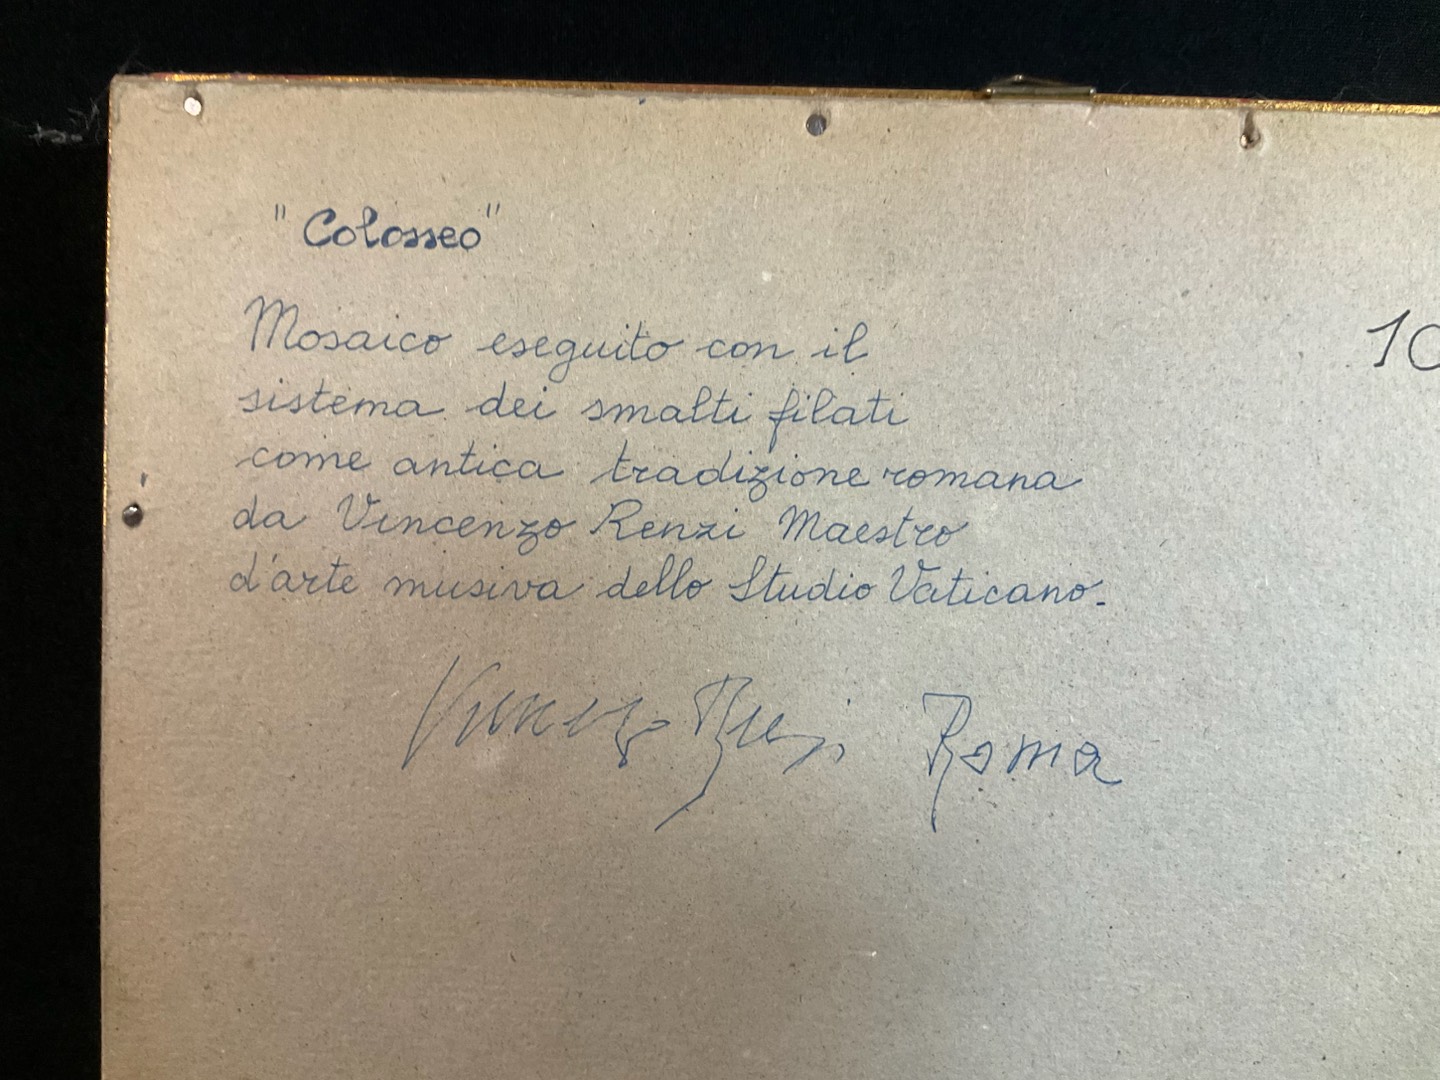 "Colosseo"
Mosaico eseguito con il
sistema dei smalti filati
come antica tradizione romana
da Vincenzo Renzi Maestro
d'arte musiva dello Studio Vaticano.
Vincenzo Renzi Roma
10